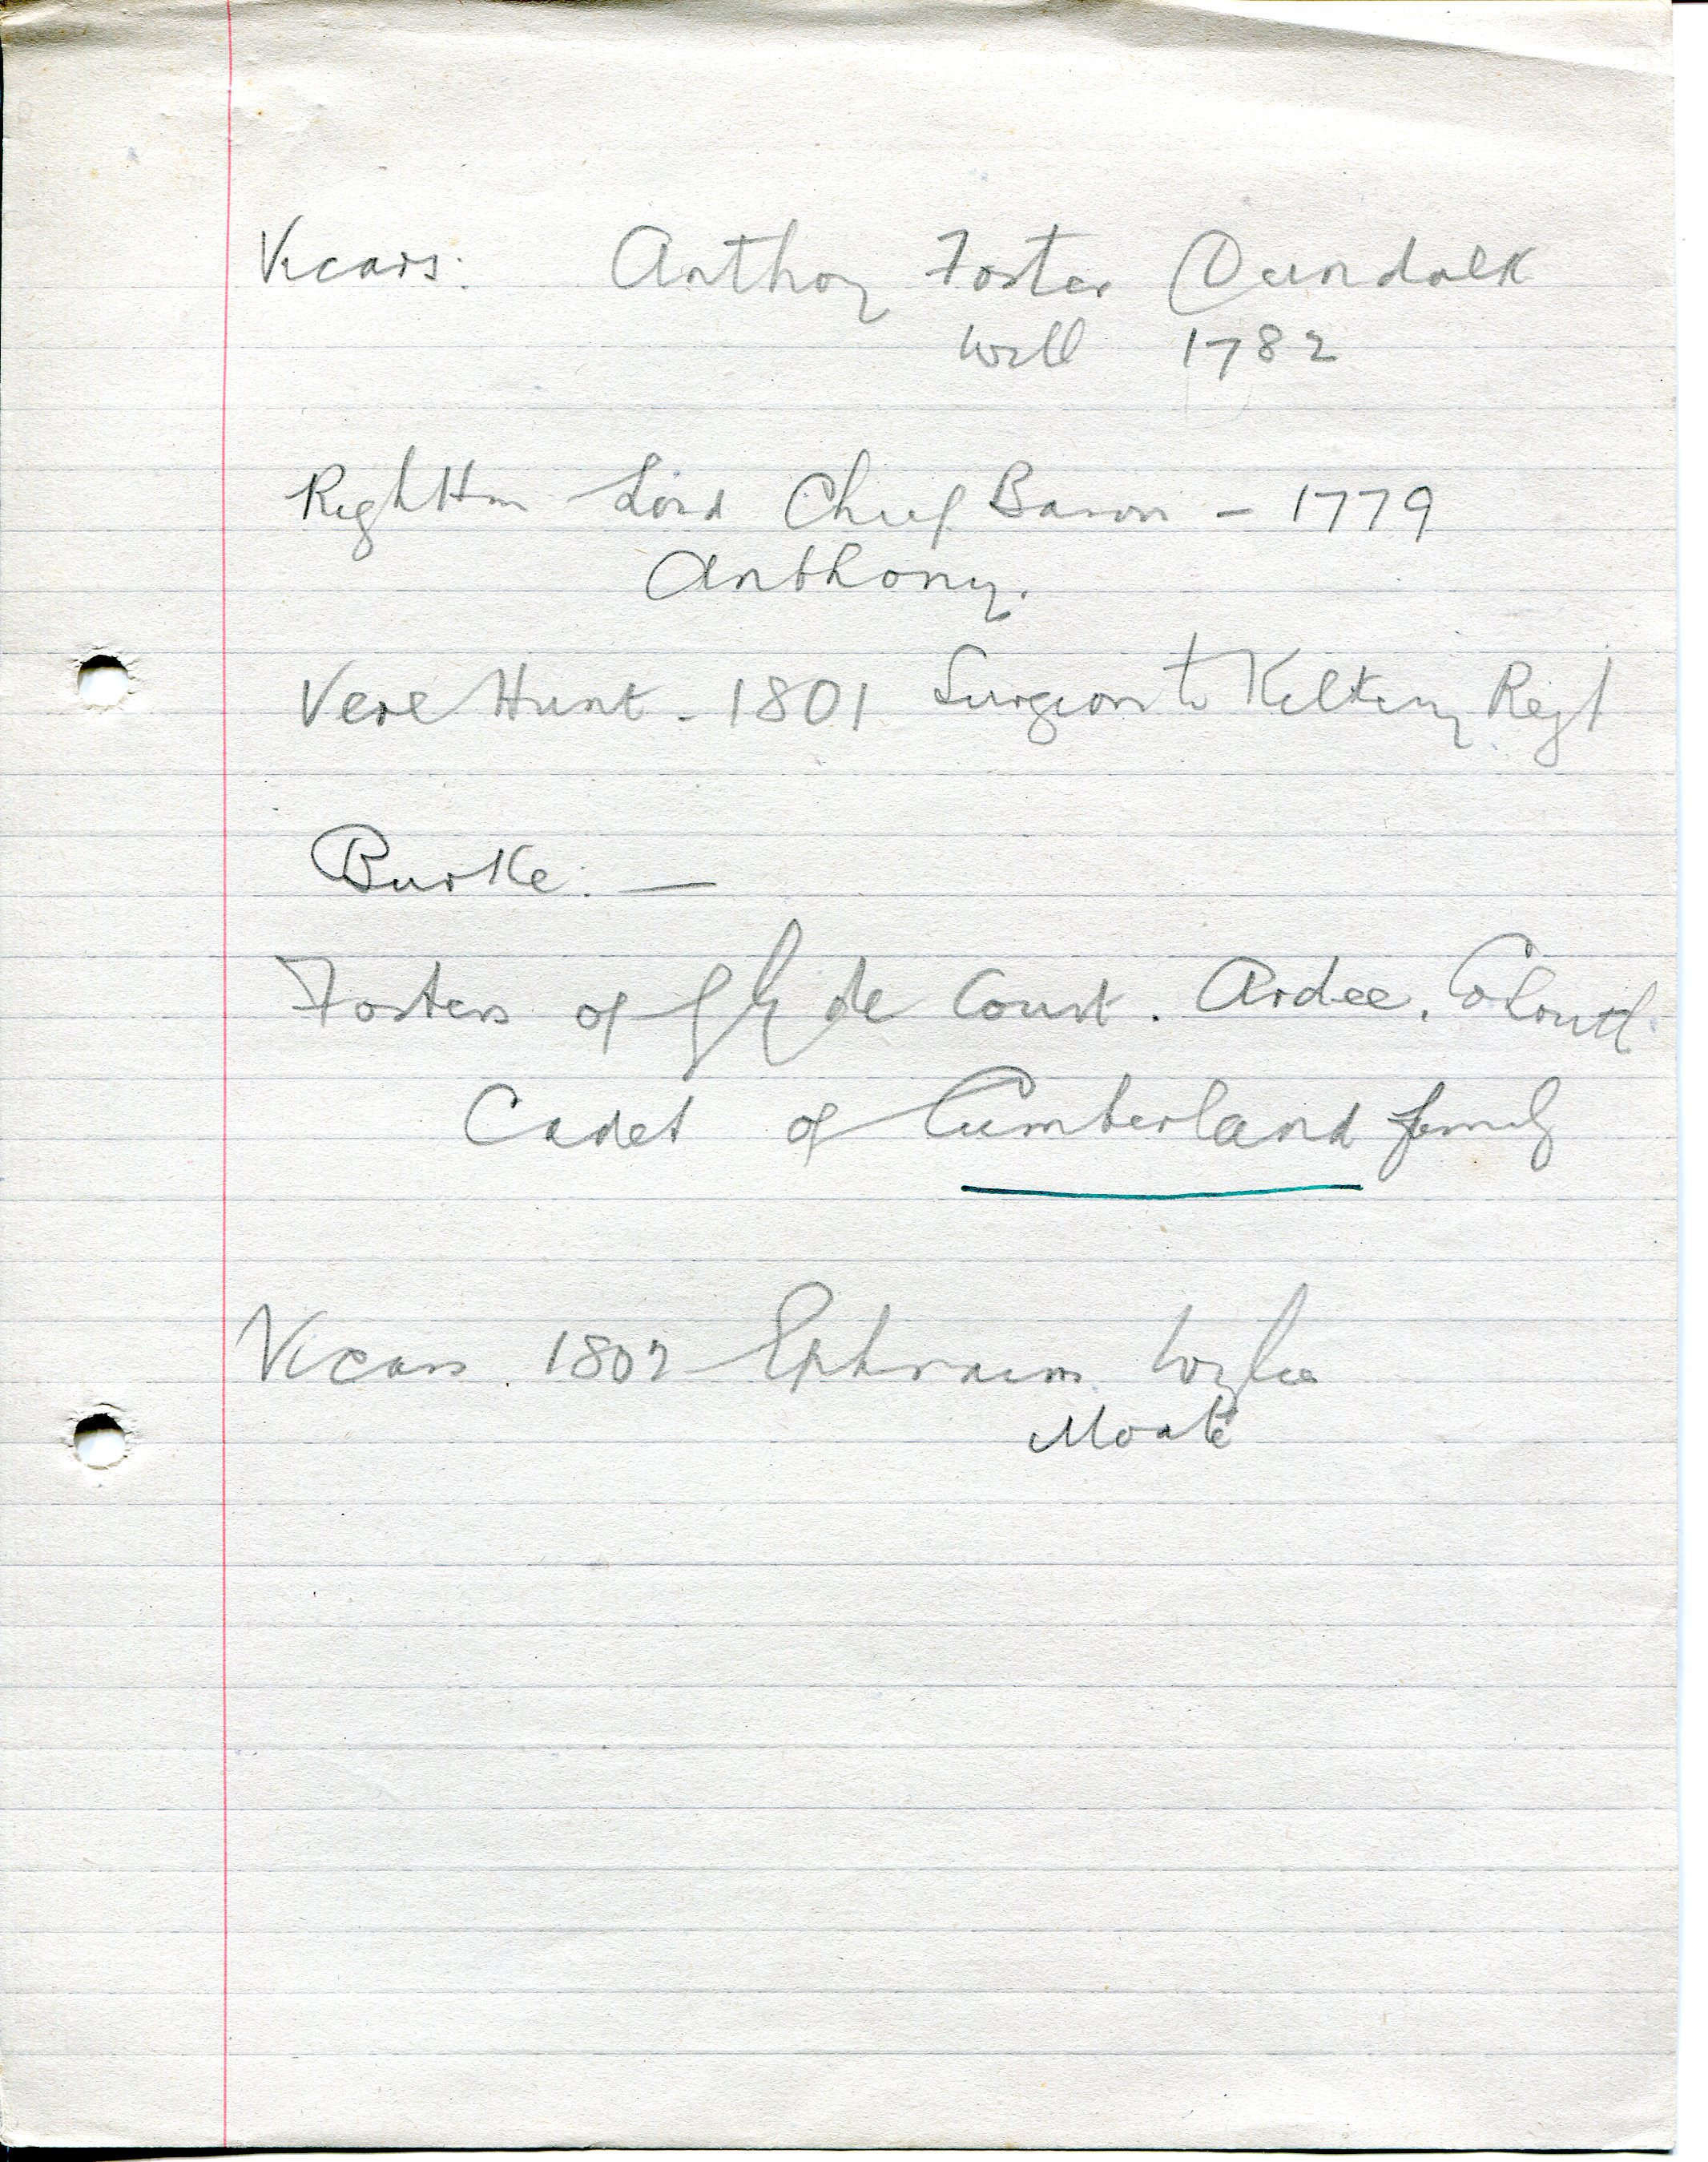 Vicars: Anthony Foster Dundalk
Will 1782
Right Hon Lord Chief Baron – 1779
Anthony.
Vere Hunt. 1801 Surgeon to Kilkenny Regt
Burke. —
Fosters of Glyde Court. Ardee. Co Louth
Cadet of Cumberland family
Vicars. 1802 Ephraim Wylie
Moate